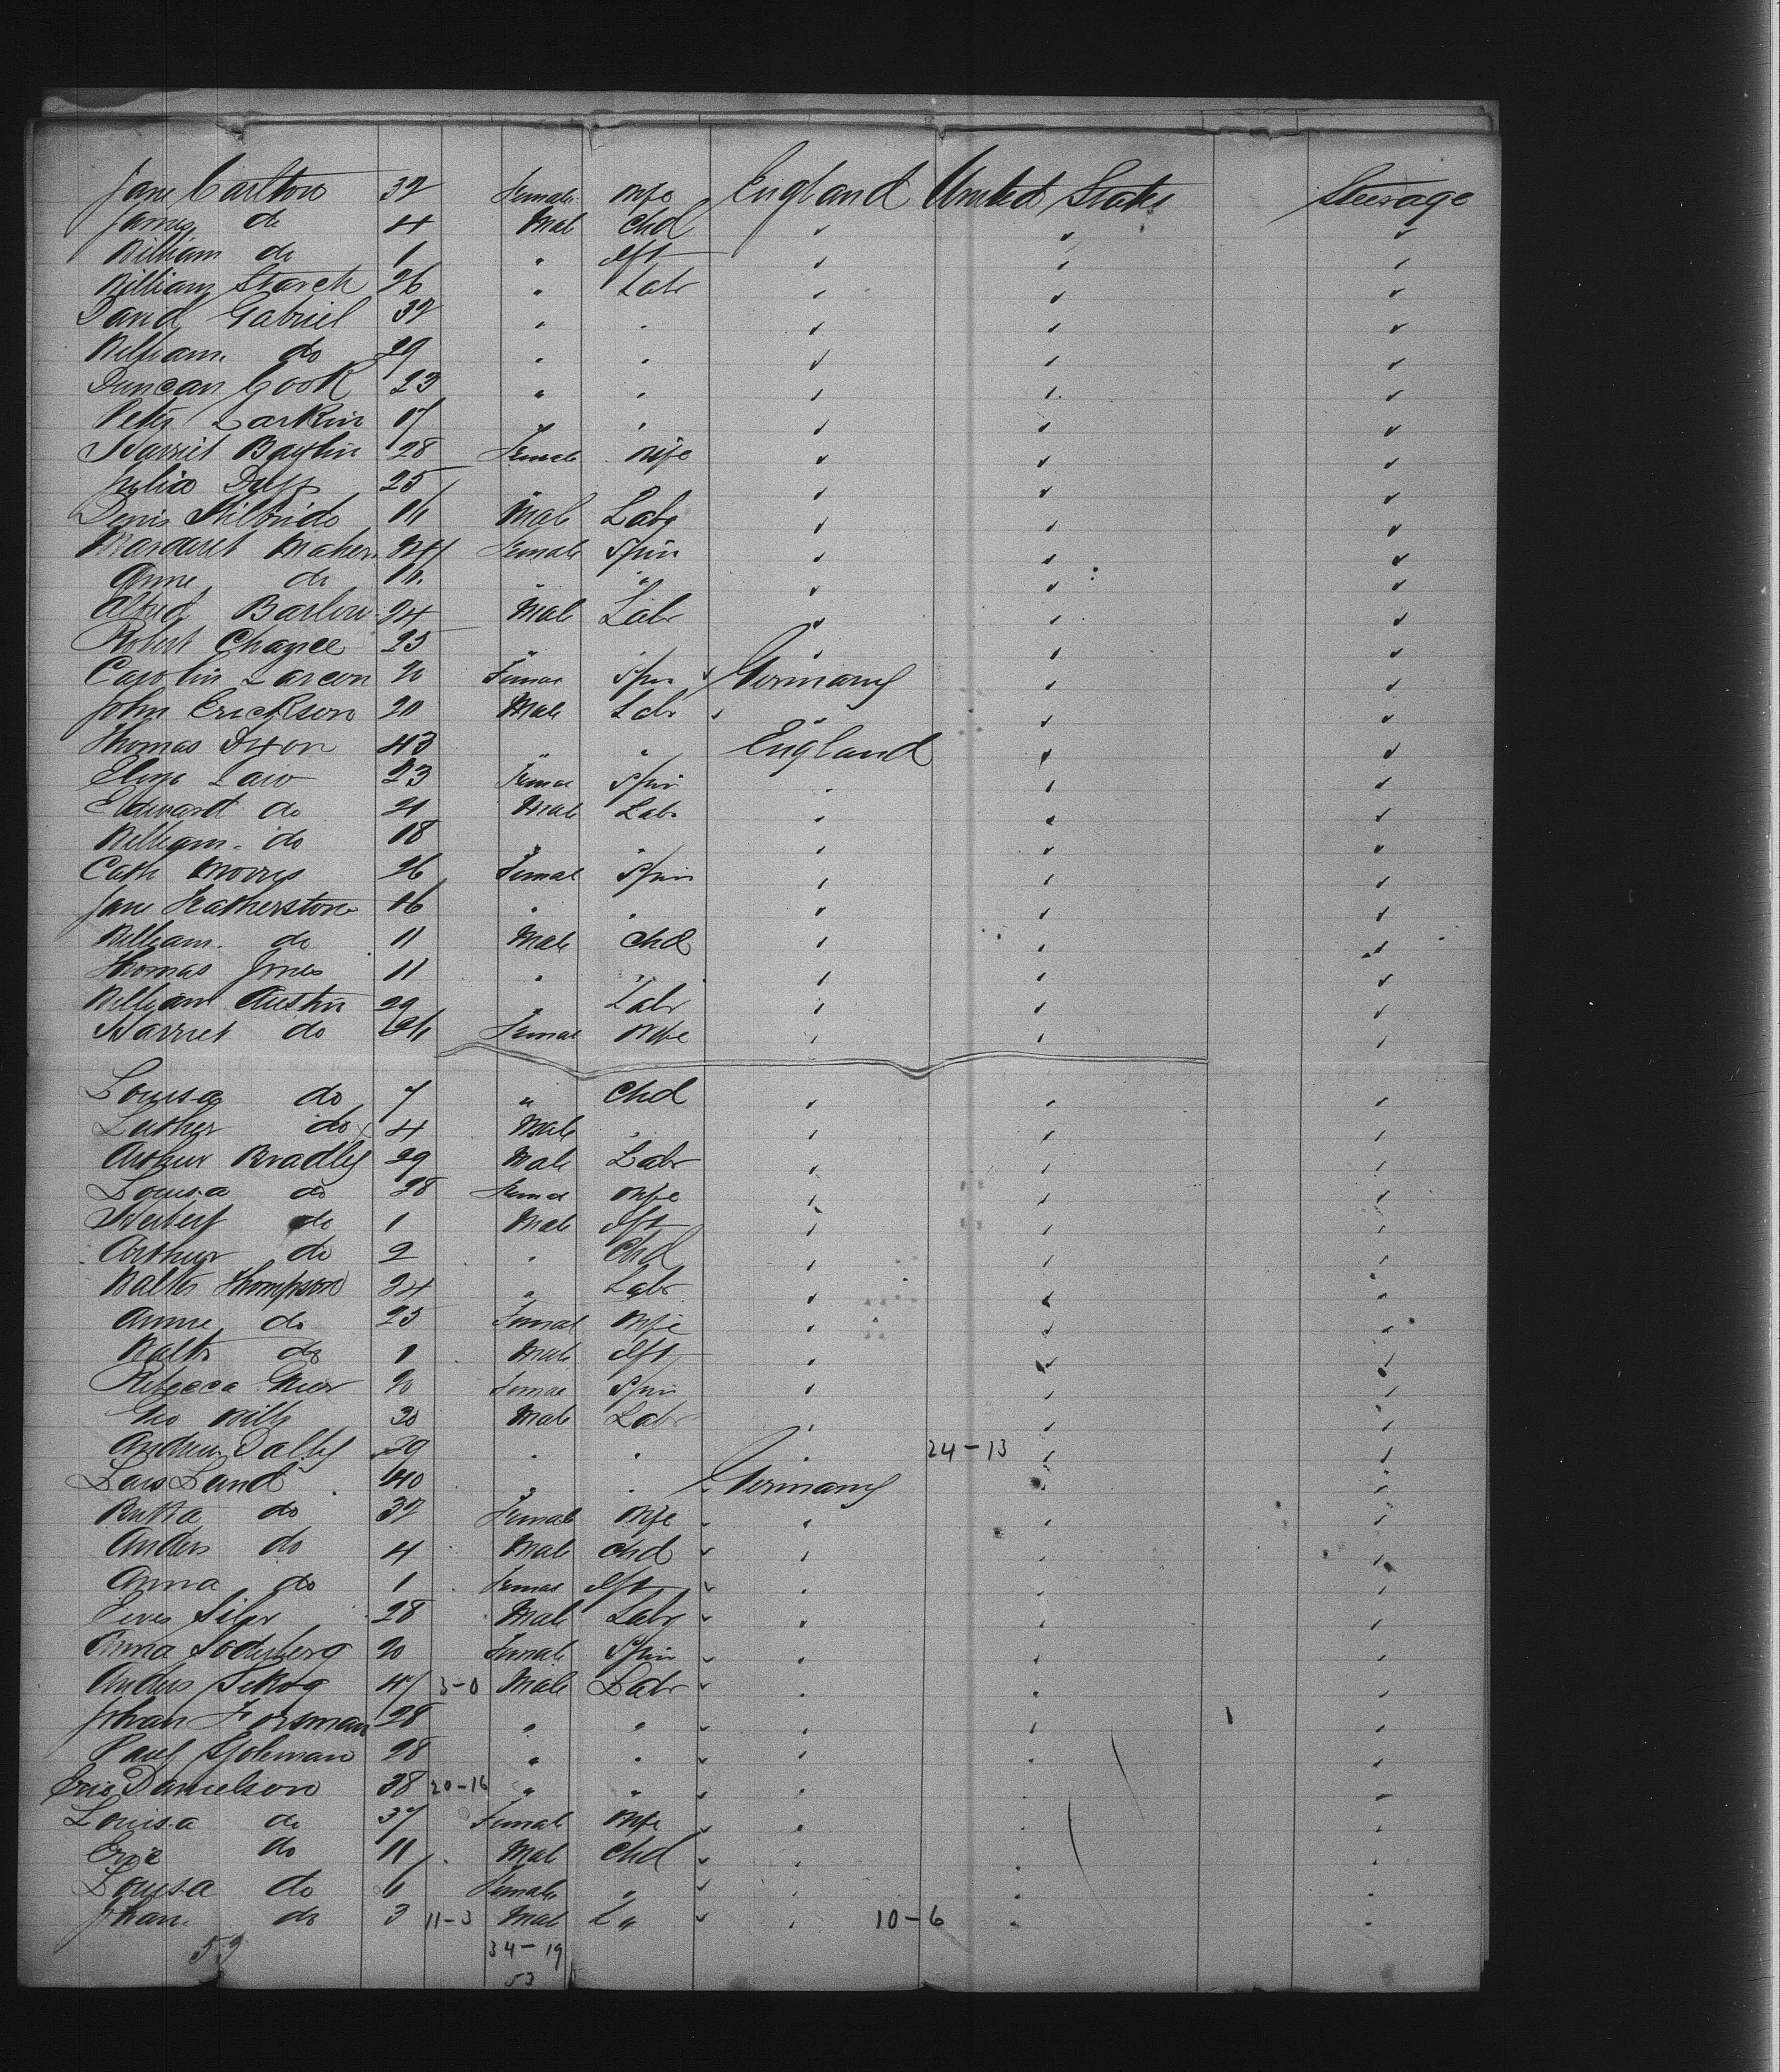 Jane Carlton 32 Female Wife England United States Steerage
James do 4 Male Chd " " "
William do 1 " Ift " " "
William Starch 26 " Labr " " "
David Gabriel 32 " " " " "
William do 29 " " " " "
Duncan Cook 23 " " " " "
Peter Larkin 17 " " " " "
Harriet Baylin 28 Female Wife " " "
Julia Duff 25 " " " " "
Denis 16 Male Labr " " "
Margaret Maher 24 Female Spin " " "
Anne do 16 " " " " "
Alfred Barlow 24 Male Labr " " "
Robert Chance 25 " " " " "
Carolin Larcon 20 Femae Spin Germany " "
John Erickson 20 Male Labr " " "
Thomas Dixon 43 " " England " "
Law 23 Femae Spin " " "
Edward do 21 Male Labr " " "
William do 18 " " " " "
Cath Morris 26 Femae Spin " " "
Jane Featherstone 16 " " " " "
William do 11 Male Chd " " "
Thomas Jones 11 " " " " "
William Austin 29 " Labr " " "
Harriet do 26 Femae Wife " " "
Louisa do 7 " Chd " " "
Luther do 4 Male " " " "
Arthur Bradley 29 Male Labr " " "
Louisa do 28 Femae Wife " " "
Herbert do 1 Male Ift " " "
Arthur do 2 " Chd " " "
Walter Thompson 24 " Labr " " "
Annie do 25 Femae Wife " " "
Walter do 1 Male Ift " " "
Rebecca 20 Femae Spin " " "
Geo Wills 30 Male Labr " " "
Andrew Dalby 29 " " " 24-13 " "
Lars Lund 40 " " Germany " "
Britta do 32 Female Wife " " "
Anders do 4 Male Chd " " "
Anna do 1 Femae Ift " " "
28 Male Labr " " "
Anna Soderberg 20 Female Spin " " "
Anders Skog 47 3-0 Male Labr " " "
Johan Forsman 28 " " " " "
Paul 28 " " " " "
Eric Danielson 38 20-16 " " " " "
Louisa do 37 Female Wife " " "
Eric do 11 Male Chd " " "
Louisa do 6 Female " " " "
Johan do 3 11-3 Male " " 10-6 " "
53 34-19
53